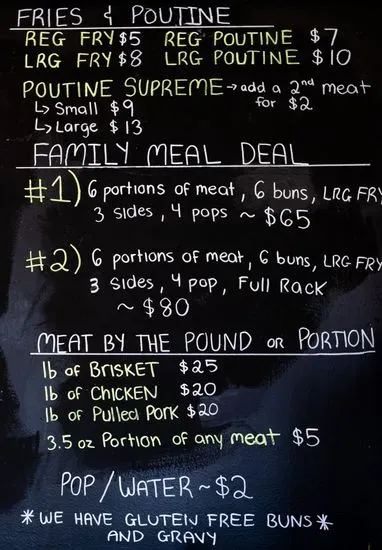 FRIES & POUTINE
REG FRY $5 REG POUTINE $7
LRG FRY $8 LRG POUTINE $10
POUTINE SUPREME → add a 2nd meat
for $2
↳ Small $9
↳ Large $13
FAMILY MEAL DEAL
#1) 6 portions of meat, 6 buns, LRG FRY
3 sides, 4 pops ~ $65
#2) 6 portions of meat, 6 buns, LRG FRY
3 sides, 4 pop, Full Rack
~ $80
MEAT BY THE POUND or PORTION
lb of BRISKET $25
lb of CHICKEN $20
lb of Pulled Pork $20
3.5 oz Portion of any meat $5
POP/WATER ~ $2
*WE HAVE GLUTEN FREE BUNS*
AND GRAVY